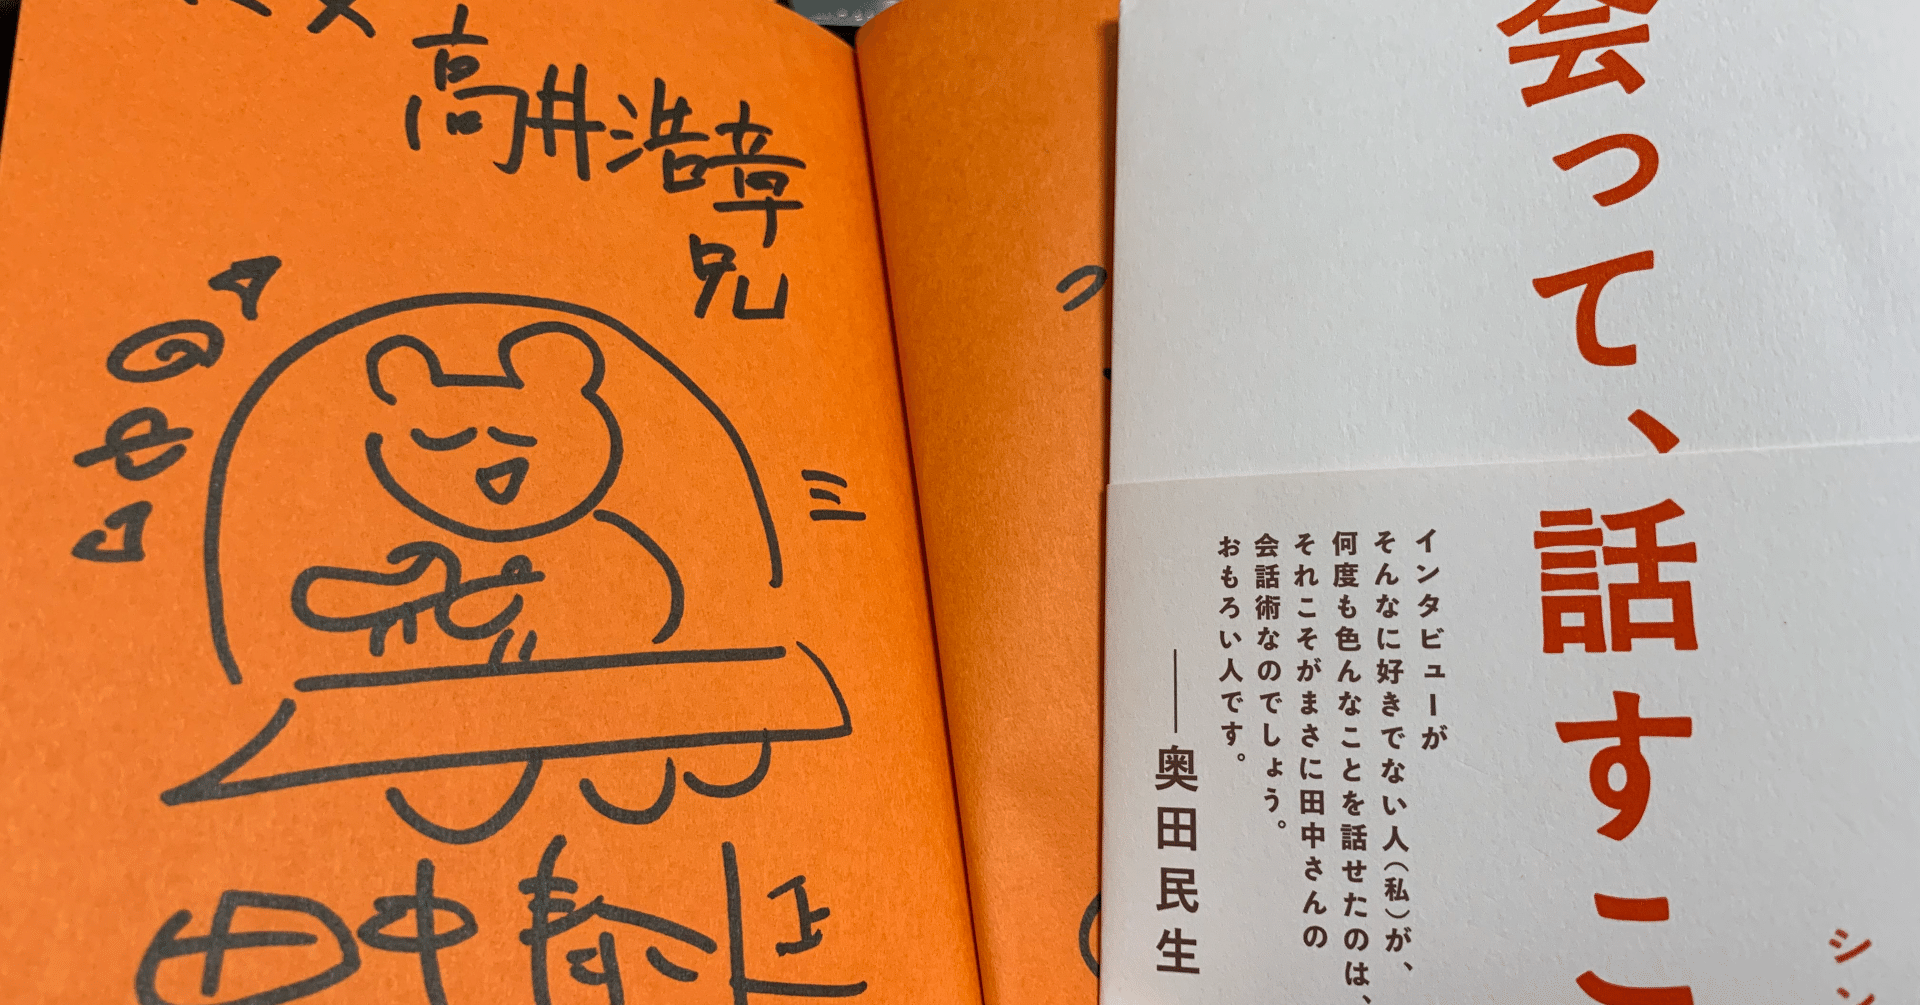 高井浩章
兄
田中泰延
会って、話すこ
インタビューが
そんなに好きでない人（私）が、
何度も色んなことを話せたのは、
それこそがまさに田中さんの
会話術なのでしょう。
おもろい人です。
──奥田民生
シン